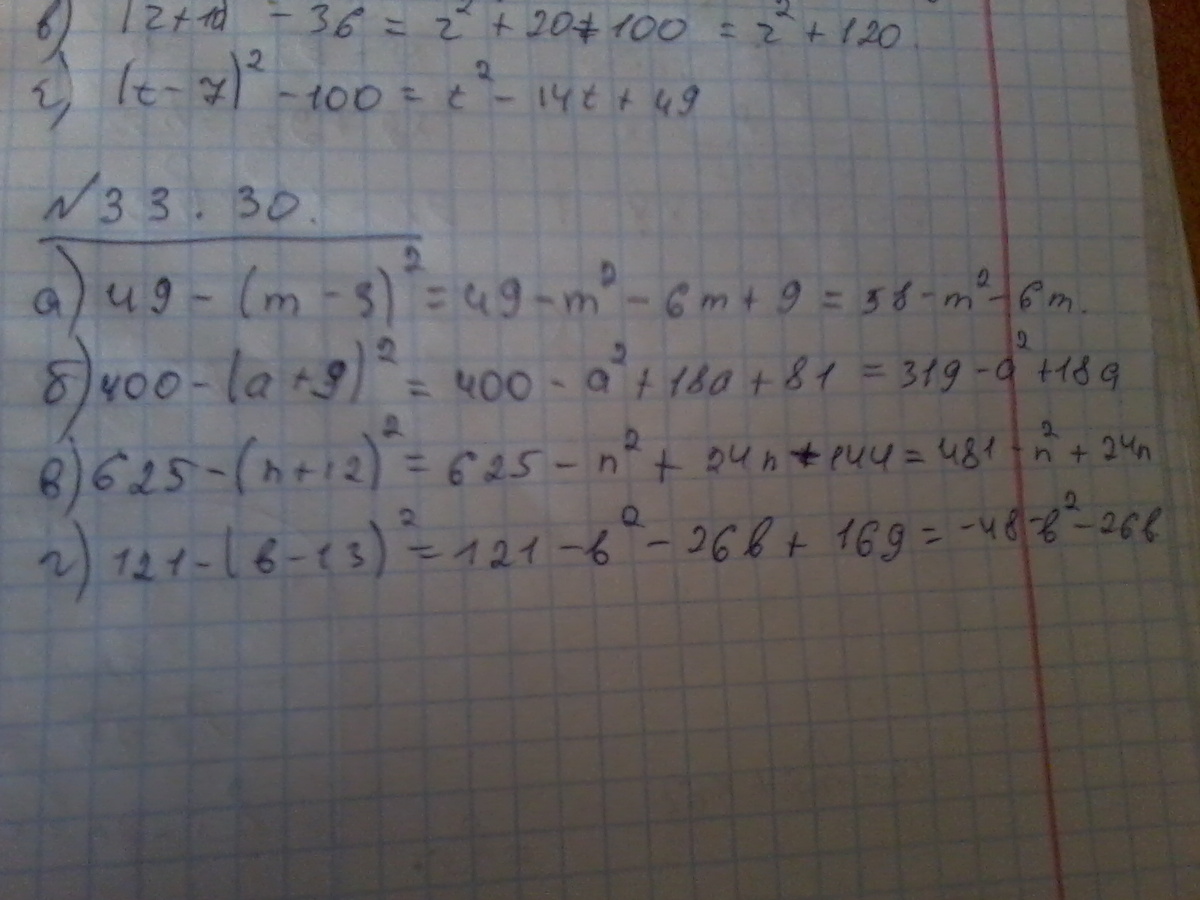 в) (z+10 - 36 = z² + 20 + 100 = z² + 120.
г) (t - 7)² - 100 = t² - 14t + 49
№ 33.30.
а) 49 - (m - 3)² = 49 - m² - 6m + 9 = 58 - m² - 6m.
б) 400 - (a + 9)² = 400 - a² + 18a + 81 = 319 - a² + 18a
в) 625 - (n + 12)² = 625 - n² + 24n + 144 = 481 - n² + 24n
г) 121 - (в - 13)² = 121 - в² - 26в + 169 = -48 - в² - 26в